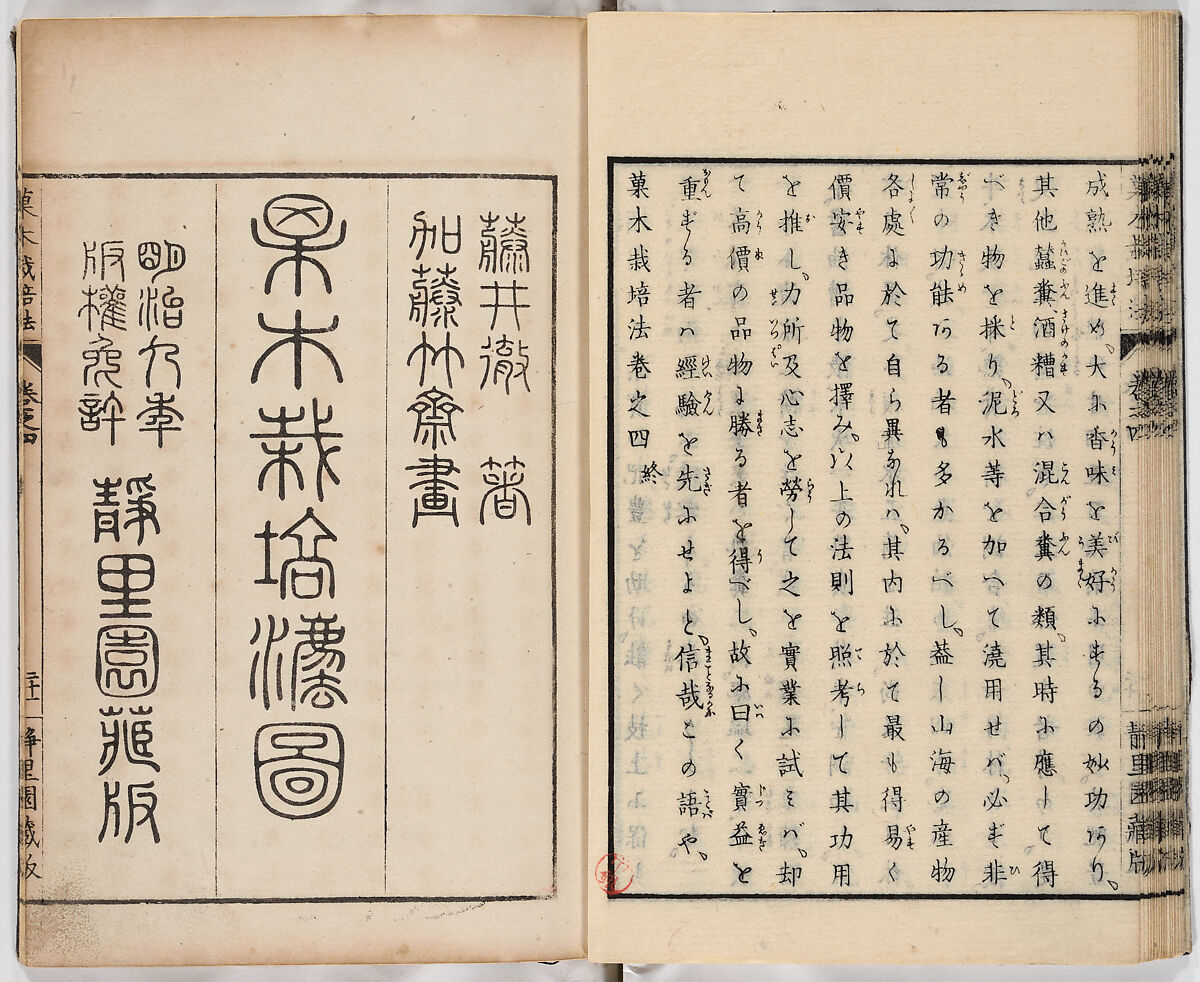 菓木栽培法 卷之四 靜里園藏版
成熟を進め、大に香味を美好にするの妙功あり、
其他蠶糞、酒糟又ハ混合糞の類、其時に應じて得
べき物を採り、泥水等を加へて澆用せバ、必ず非
常の功能ある者も多かるべし、葢し山海の產物
各處に於て自ら異なれハ、其内に於て最も得易く
價安き品物を擇み、以上の法則を照考して其功用
を推し、力所及心志を勞して之を實業に試ミバ、却
て高價の品物に勝る者を得べし、故に曰く 實益を
重ずる者ハ經驗を先にせよと、信哉この語や、
菓木栽培法卷之四 終
藤井徹 著
加藤竹齋畫
果木栽培灋圖
明治九年
版權免許
靜里園藏版
菓木栽培法 卷之四 靜里園藏版